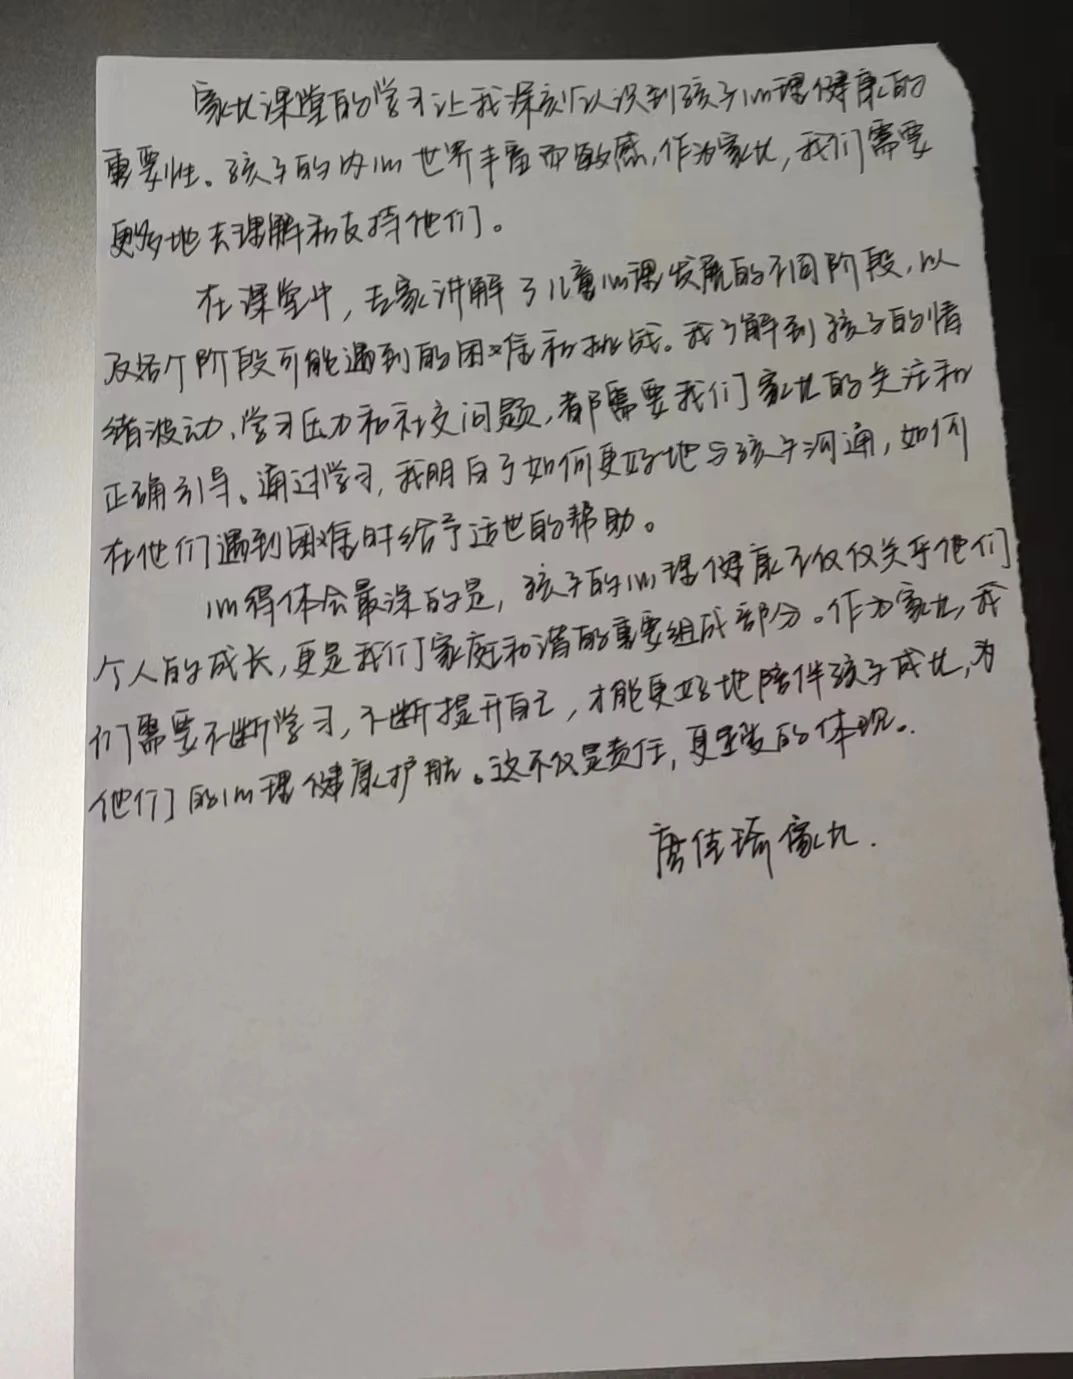 家长课堂的学习让我深刻认识到孩子心理健康的
重要性。孩子的内心世界丰富而敏感,作为家长,我们需要
更多地去理解和支持他们。
在课堂中,专家讲解了儿童心理发展的不同阶段,以
及各个阶段可能遇到的困难和挑战。我了解到孩子的情
绪波动、学习压力和社交问题,都需要我们家长的关注和
正确引导。通过学习,我明白了如何更好地与孩子沟通,如何
在他们遇到困难时给予适当的帮助。
心得体会最深的是,孩子的心理健康不仅仅关乎他们
个人的成长,更是我们家庭和谐的重要组成部分。作为家长,我
们需要不断学习,不断提升自己,才能更好地陪伴孩子成长,为
他们的心理健康护航。这不仅是责任,更是爱的体现。
唐佳瑜家长.